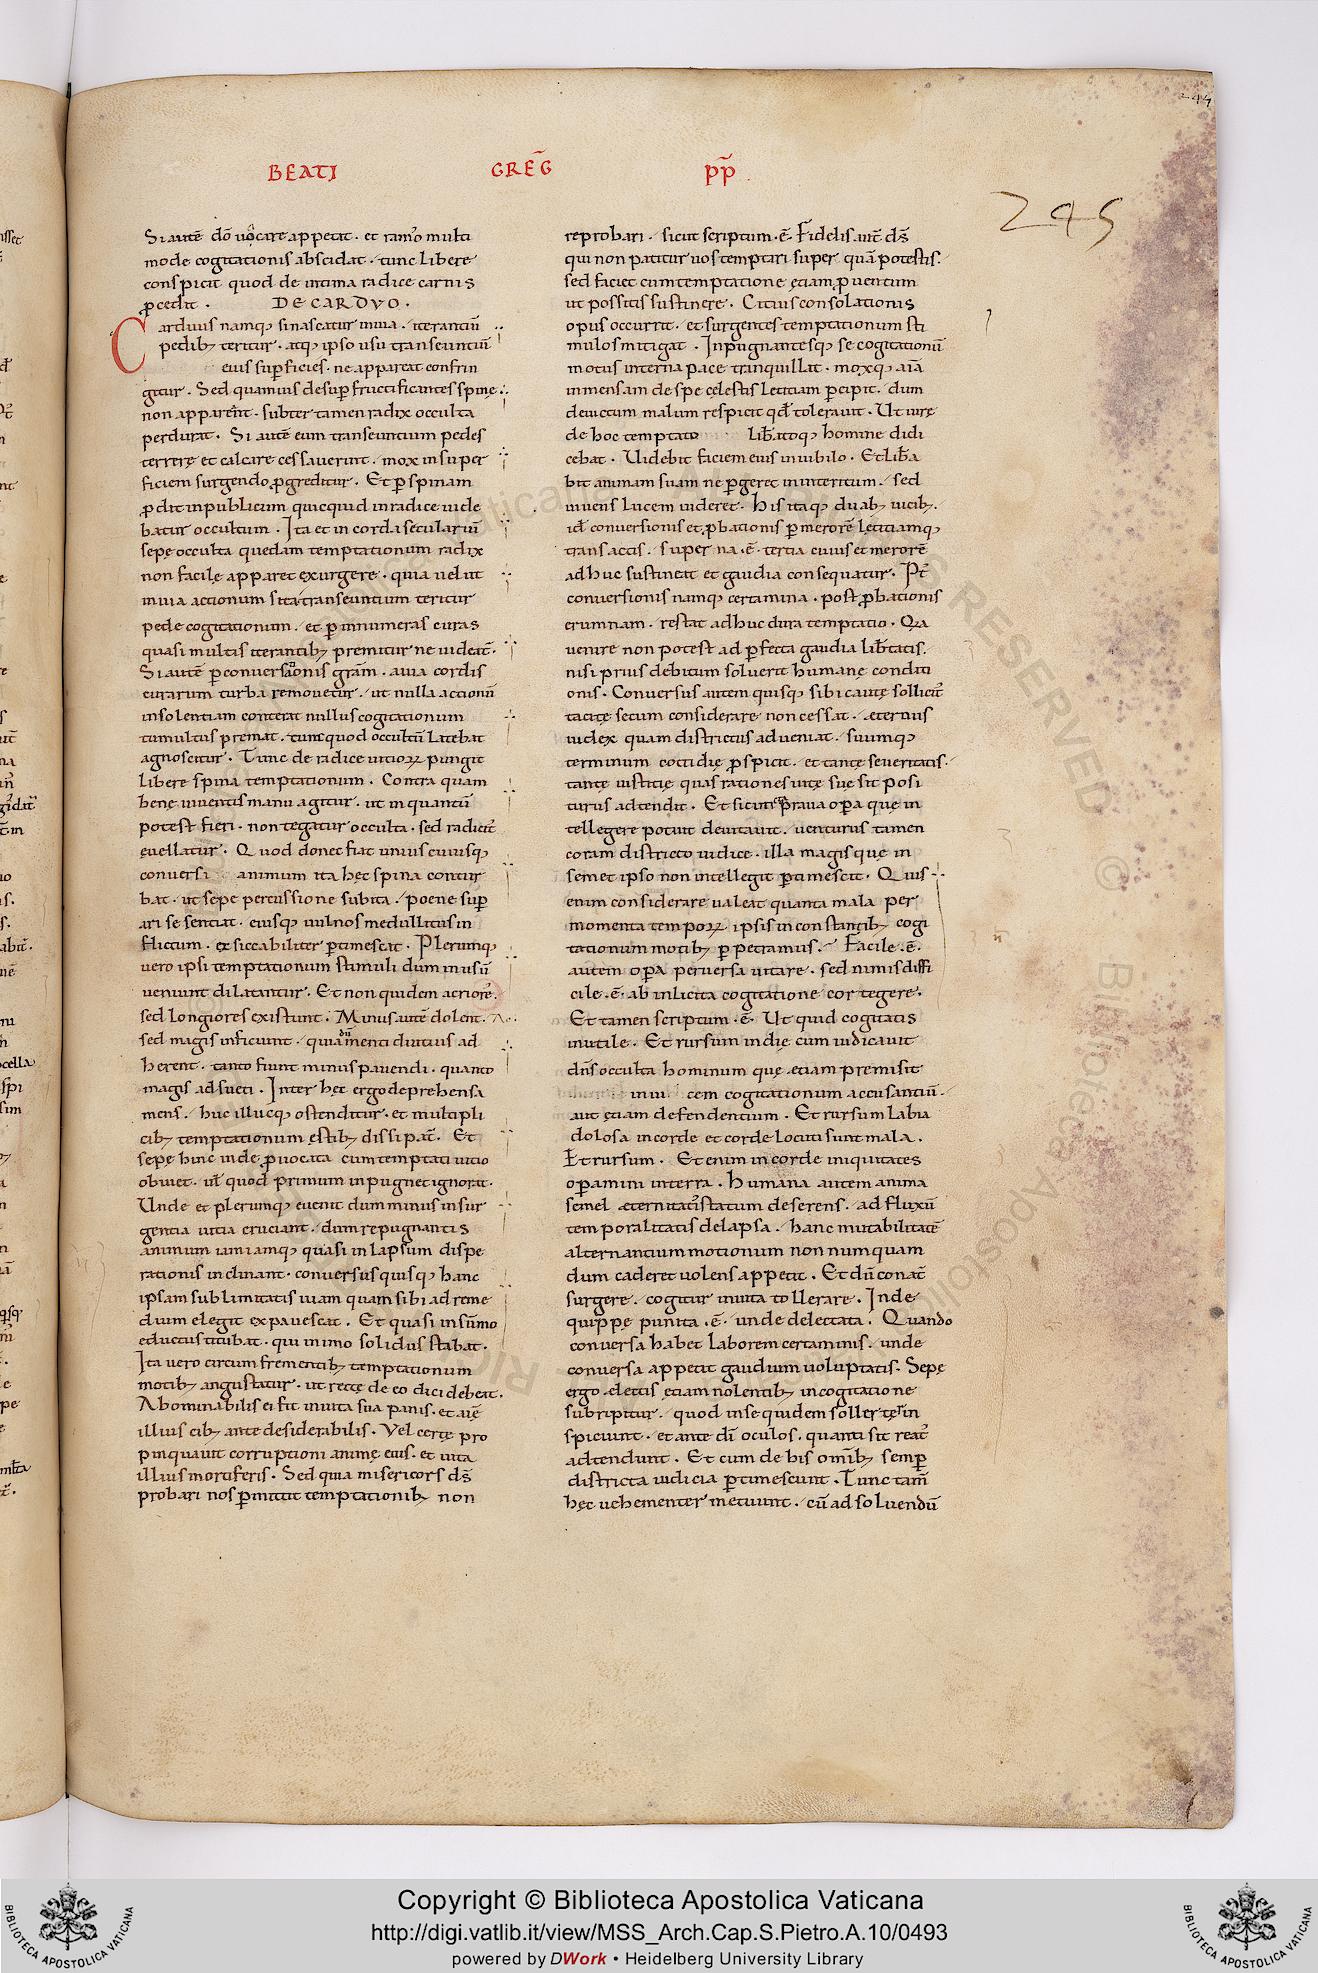 244
BEATI GREG̅ PP̅
245
Si autē dō uocare appetit · et ram̅o multi
mode cogitationis abscidat · tunc libere
conspicit quod de intima radice carnis
ꝓcedit . DE CARDVO .
Carduus namq; si nascatur in uia · iterantiū
pedib; teritur · atq; ipso usu transeuntiū
eius suꝑficies · ne appareat confrin
gitur . Sed quamuis desuꝑ fructificantes spinę
non apparent · subter tamen radix occulta
perdurat . Si autē eum transeuntium pedes
terrere et calcare cessauerint . mox in super
ficiem surgendo ꝓgreditur . Et ꝑ spinam
ꝓdit in publicum quicquid in radice uide
batur occultum . Ita et in corda seculariū
sepe occulta quedam temptationum radix
non facile apparet exurgere · quia uelut
in uia actionum sita transeuntium teritur
pede cogitationum · et ꝑ innumeras curas
quasi multis iterantib; premitur ne uideat̅ .
Si autē ꝑ conuersationis grām · a uia cordis
curarum turba remouetur . ut nulla actionū
insolentiam conterat nullus cogitationum
tumultus premat . tunc quod occultū latebat
agnoscitur . Tunc de radice uitioꝝ pungit
libere spina temptationum . Contra quam
bene uiuentis manu agitur . ut in quantū
potest fieri · non tegatur occulta · sed radicit̅
euellatur . Quod donec fiat unius cuiusq;
conuersi animum ita hęc spina contur
bat . ut sepe percussione subita · poene suꝑ
ari se sentiat · eiusq; uulnos medullitus in
flictum · exsiccabiliter ꝑtimescat . Plerumq;
uero ipsi temptationum stimuli dum in usū
ueniunt dilatantur . Et non quidem acriore̅ .
sed longiores existunt . Minus autē dolent .
sed magis inficiunt · quia dū menti diutius ad
herent · tanto fiunt minus pauendi · quanto
magis adsueti . Inter hęc ergo deprehensa
mens . huc illucq; ostenditur · et multipli
cib; temptationum ęstib; dissipat̅ . Et
sepe hinc inde ꝓuocata cum temptati uitio
obuiet · ul̅ quod primum inpugnet ignorat .
Unde et plerumq; euenit dum minus insur
gentia uitia cruciant . dum repugnantis
animum iamiamq; quasi in lapsum dispe
rationis inclinant · conuersus quisq; hanc
ipsam sublimitatis uiam quam sibi ad reme
dium elegit expauescat . Et quasi in sūmo
eductus titubat · qui in imo solidus stabat .
Ita uero circumfrementib; temptationum
motib; angustatur · ut recte de eo dici debeat .
Abominabilis ei fit in uita sua panis · et aīę
illius cib; ante desiderabilis . Vel certe pro
pinquauit corruptioni animę eius · et uita
illius mortiferis . Sed quia misericors ds̅
probari nos ꝑmittit temptationib; non
reprobari . sicut scriptum · ē · Fidelis aut̅ ds̅
qui non patitur uos temptari super quā potestis .
sed faciet cum temptatione etiam ꝓuentum
ut possitis sustinere . Citius consolationis
opus occurrit · et surgentes temptationum sti
mulos mitigat . Inpugnantesq; se cogitationū
motus interna pace tranquillat · moxq; aīā
inmensam de spe celestis letitiam ꝑcipit · dum
deuictum malum respicit qd̅ tolerauit . Ut iure
de hoc temptato lib̅atoq; homine didi
cebat . Uidebit faciem eius in iubilo . Et lib̅a
bit animam suam ne ꝑgeret in interitum . sed
uiuens lucem uideret . His itaq; duab; uicib; .
id̅ conuersionis et ꝓbationis ꝑ merorē lętitiamq;
transactis . super na · ē · tertia cuius et merorē
adhuc sustineat et gaudia consequatur . Pt̅
conuersionis namq; certamina · post ꝓbationis
erumnam . restat adhuc dura temptatio . Qa
uenire non potest ad ꝑfecta gaudia lib̅tatis .
nisi prius debitum soluerit humanę conditi
onis . Conuersus autem quisq; sibi caute sollicit̅
tacite secum considerare non cessat . ęternus
iudex quam districtus adueniat . suumq;
terminum cottidie ꝓspicit . et tantę seueritatis .
tantę iustitię quas rationes uitę suę sit posi
turus adtendit . Et si cuncta praua oꝑa quę in
tellegere potuit deuitauit . uenturus tamen
coram districto iudice . illa magis quę in
semet ipso non intellegit ꝑtimescit . Quis
enim considerare ualeat quanta mala per
momenta tempoꝝ ipsis inconstantib; cogi
tationum motib; ꝑpetramus . Facile · ē ·
autem oꝑa peruersa uitare . sed nimis diffi
cile · ē · ab inlicita cogitatione cor tegere .
Et tamen scriptum · ē · Ut quid cogitatis
inutile . Et rursum in die cum iudicauit
dn̅s occulta hominum quę etiam premisit
in ui cem cogitationum accusantiū .
aut etiam defendentium . Et rursum labia
dolosa in corde et corde locuti sunt mala .
Et rursum . Et enim in corde iniquitates
oꝑamini in terra . Humana autem anima
semel ęternitatis statum deserens . ad fluxū
temporalitatis delapsa . hanc mutabilitatē
alternantium motionum non numquam
dum caderet uolens appetit . Et dū conat̅
surgere . cogitur inuita tollerare . Inde
quippe punita · ē · unde delectata . Quando
conuersa habet laborem certaminis . unde
conuersa appetit gaudium uoluptatis . Sepe
ergo electis etiam nolentib; in cogitatione
subripitur . quod in se quidem sollerter in
spiciunt . et ante di̅ oculos . quanti sit reat̅
adtendunt . Et cum de his omīb; semꝑ
districta iudicia ꝑtimescunt . Tunc tam̅
hęc uehementer metuunt . cū ad soluendū
Copyright © Biblioteca Apostolica Vaticana
http://digi.vatlib.it/view/MSS_Arch.Cap.S.Pietro.A.10/0493
powered by DWork • Heidelberg University Library
BIBLIOTECA APOSTOLICA VATICANA
BIBLIOTECA APOSTOLICA VATICANA